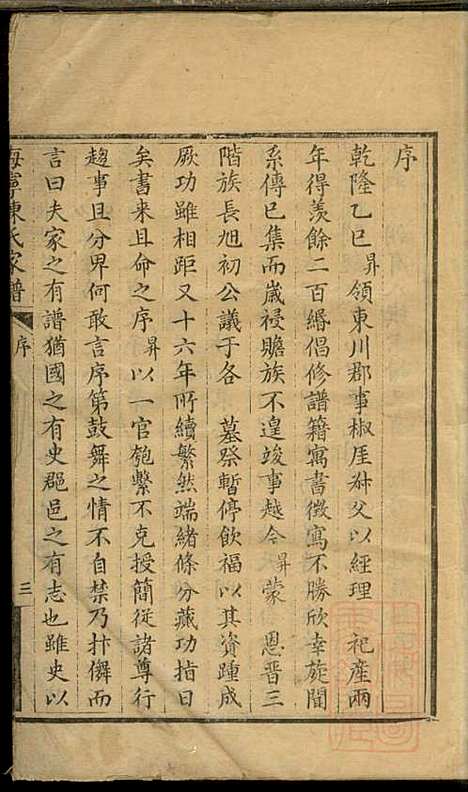 序
乾隆乙巳昇領東川郡事椒厓叔父以經理 祀產兩
年得羨餘二百緡倡修譜籍寓書徵寓不勝欣幸旋聞
系傳已集而歲祲贍族不遑竣事越今昇蒙 恩晉三
階族長旭初公議于各 墓祭暫停飲福以其資踵成
厥功雖相距又十六年所續繁然端緒條分蕆功指日
矣書来且命之序昇以一官匏繫不克授簡從諸尊行
趨事且分卑何敢言序第鼓舞之情不自禁乃拜儛而
言曰夫家之有譜猶國之有史郡邑之有志也雖史以
海寧陳氏家譜 序 三